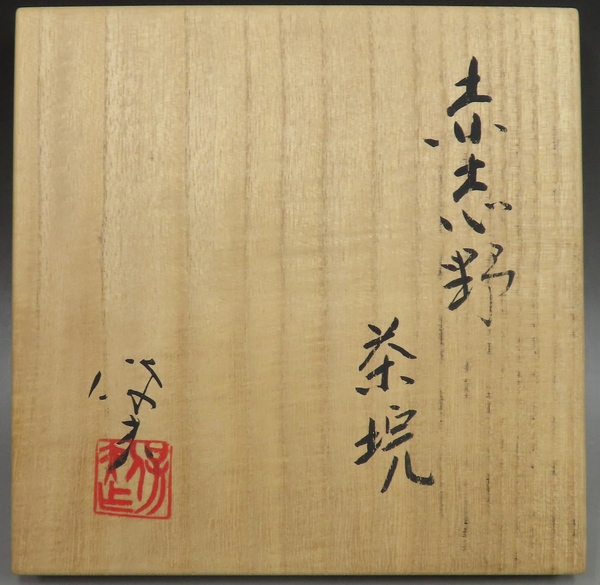 赤志野
茶垸